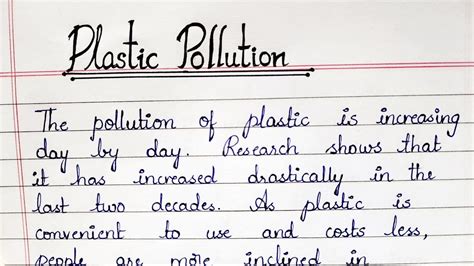 Plastic Pollution
The pollution of plastic is increasing
day by day. Research shows that
it has increased drastically in the
last two decades. As plastic is
convenient to use and costs less,
people are more inclined in